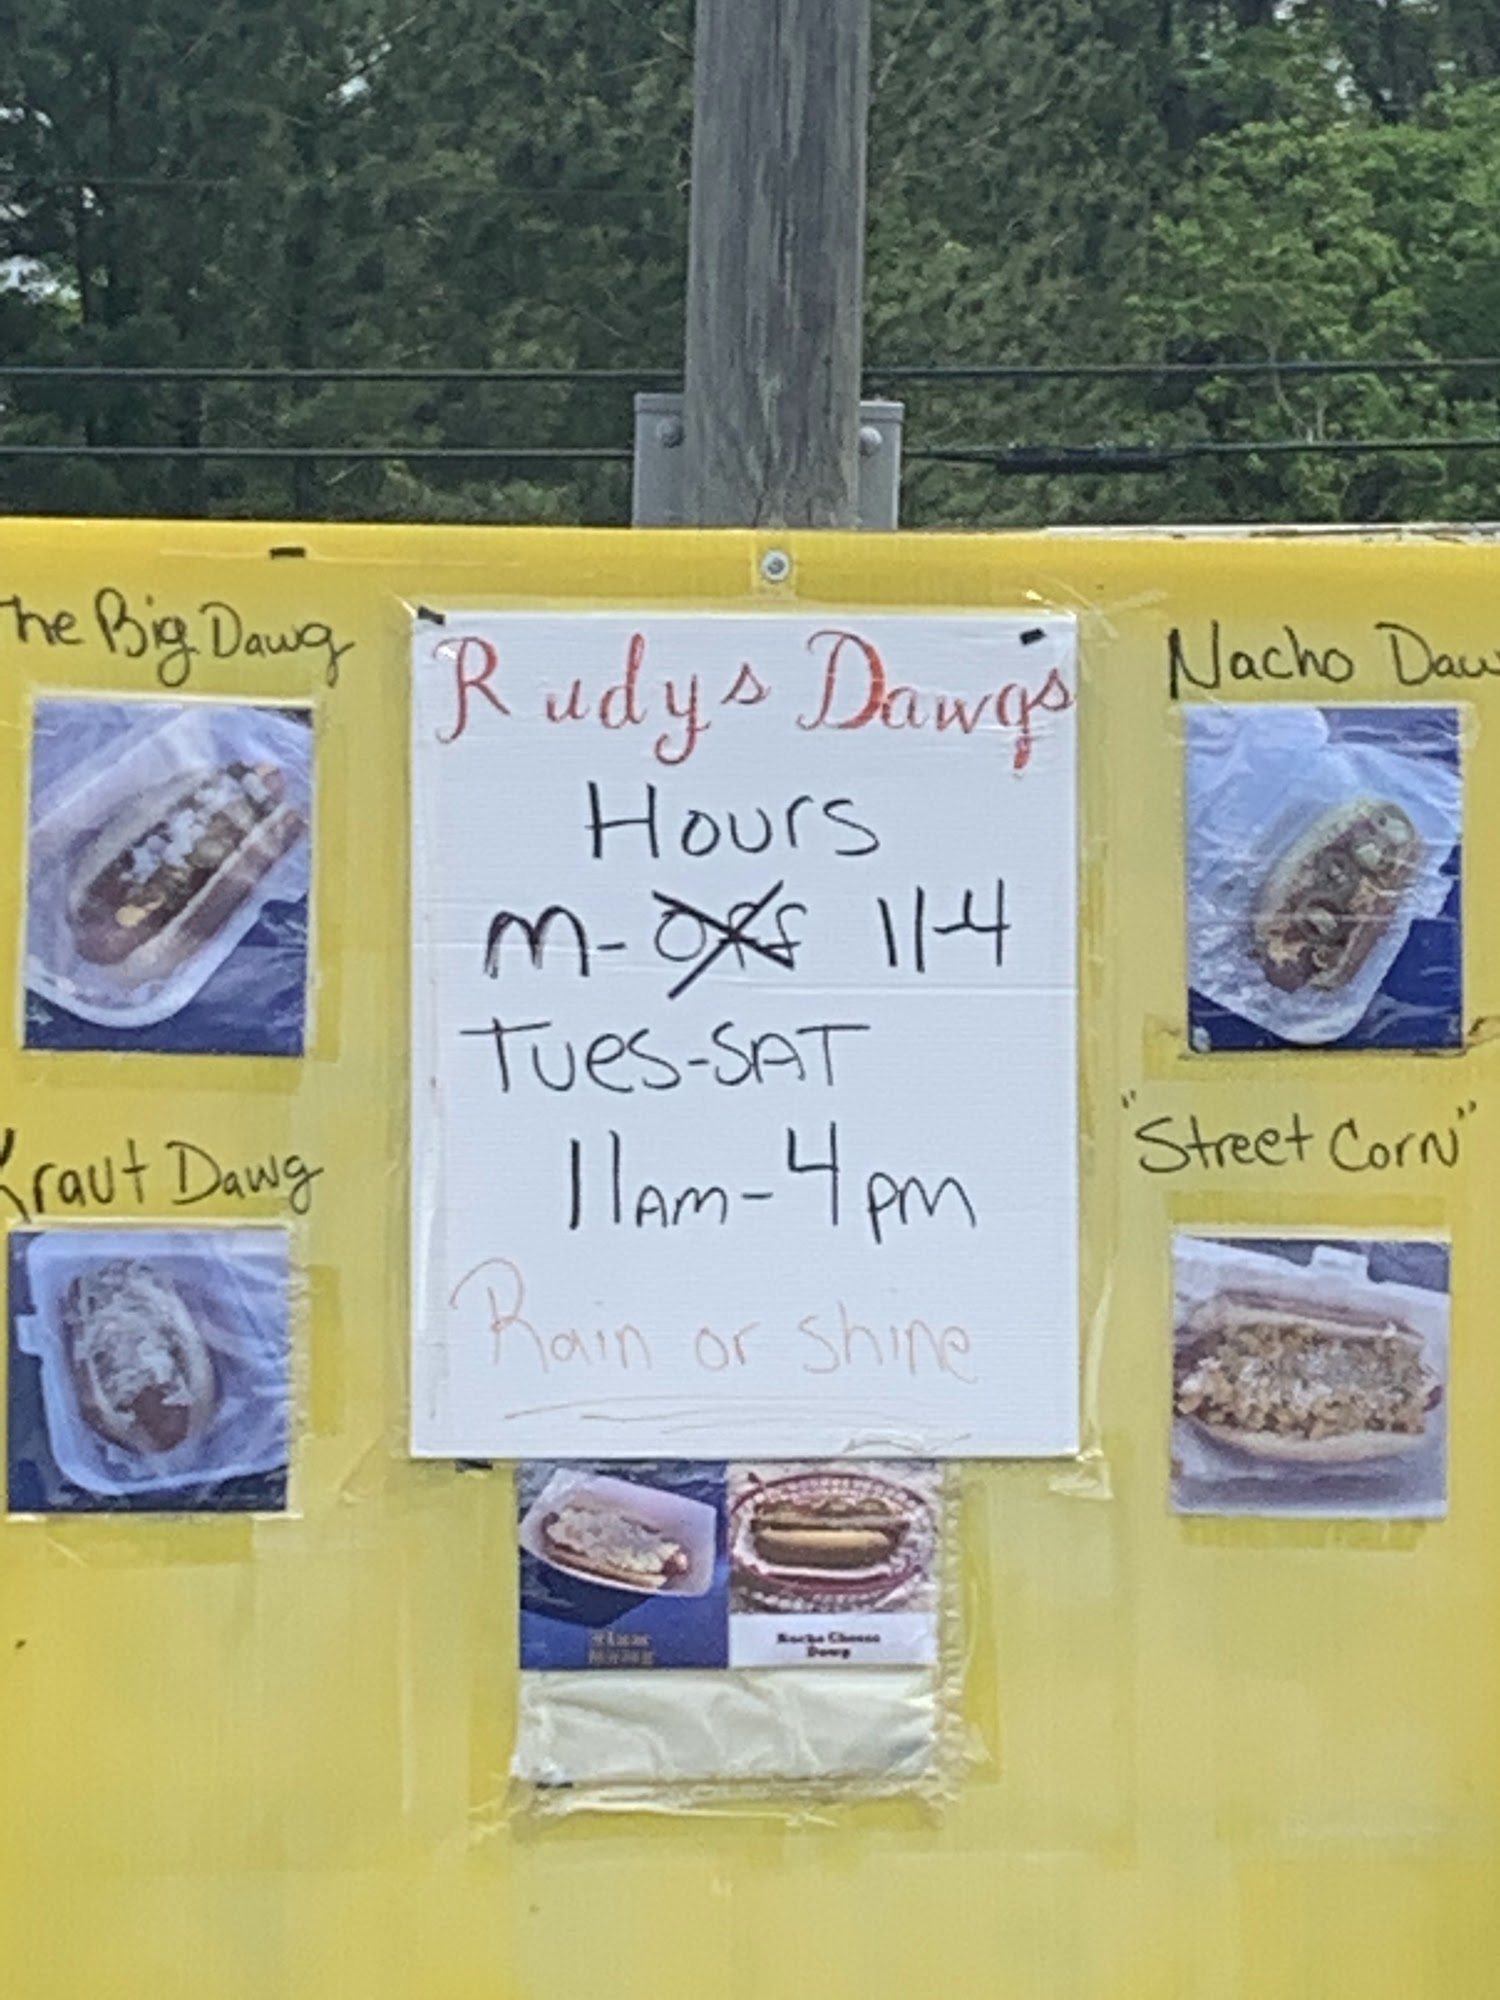 The Big Dawg
Rudys Dawgs
Nacho Daw
Hours
M- Off 11-4
Tues-SAT
11AM-4PM
Kraut Dawg
"Street Corn"
Rain or shine
Nacho Cheese
Dawg